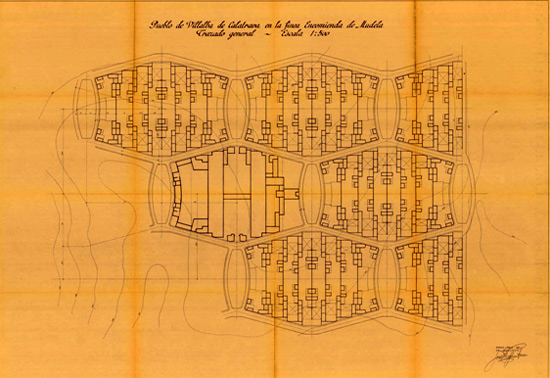 Pueblo de Villalba de Calatrava en la finca Encomienda de Mudela
Trazado general ~ Escala 1:500